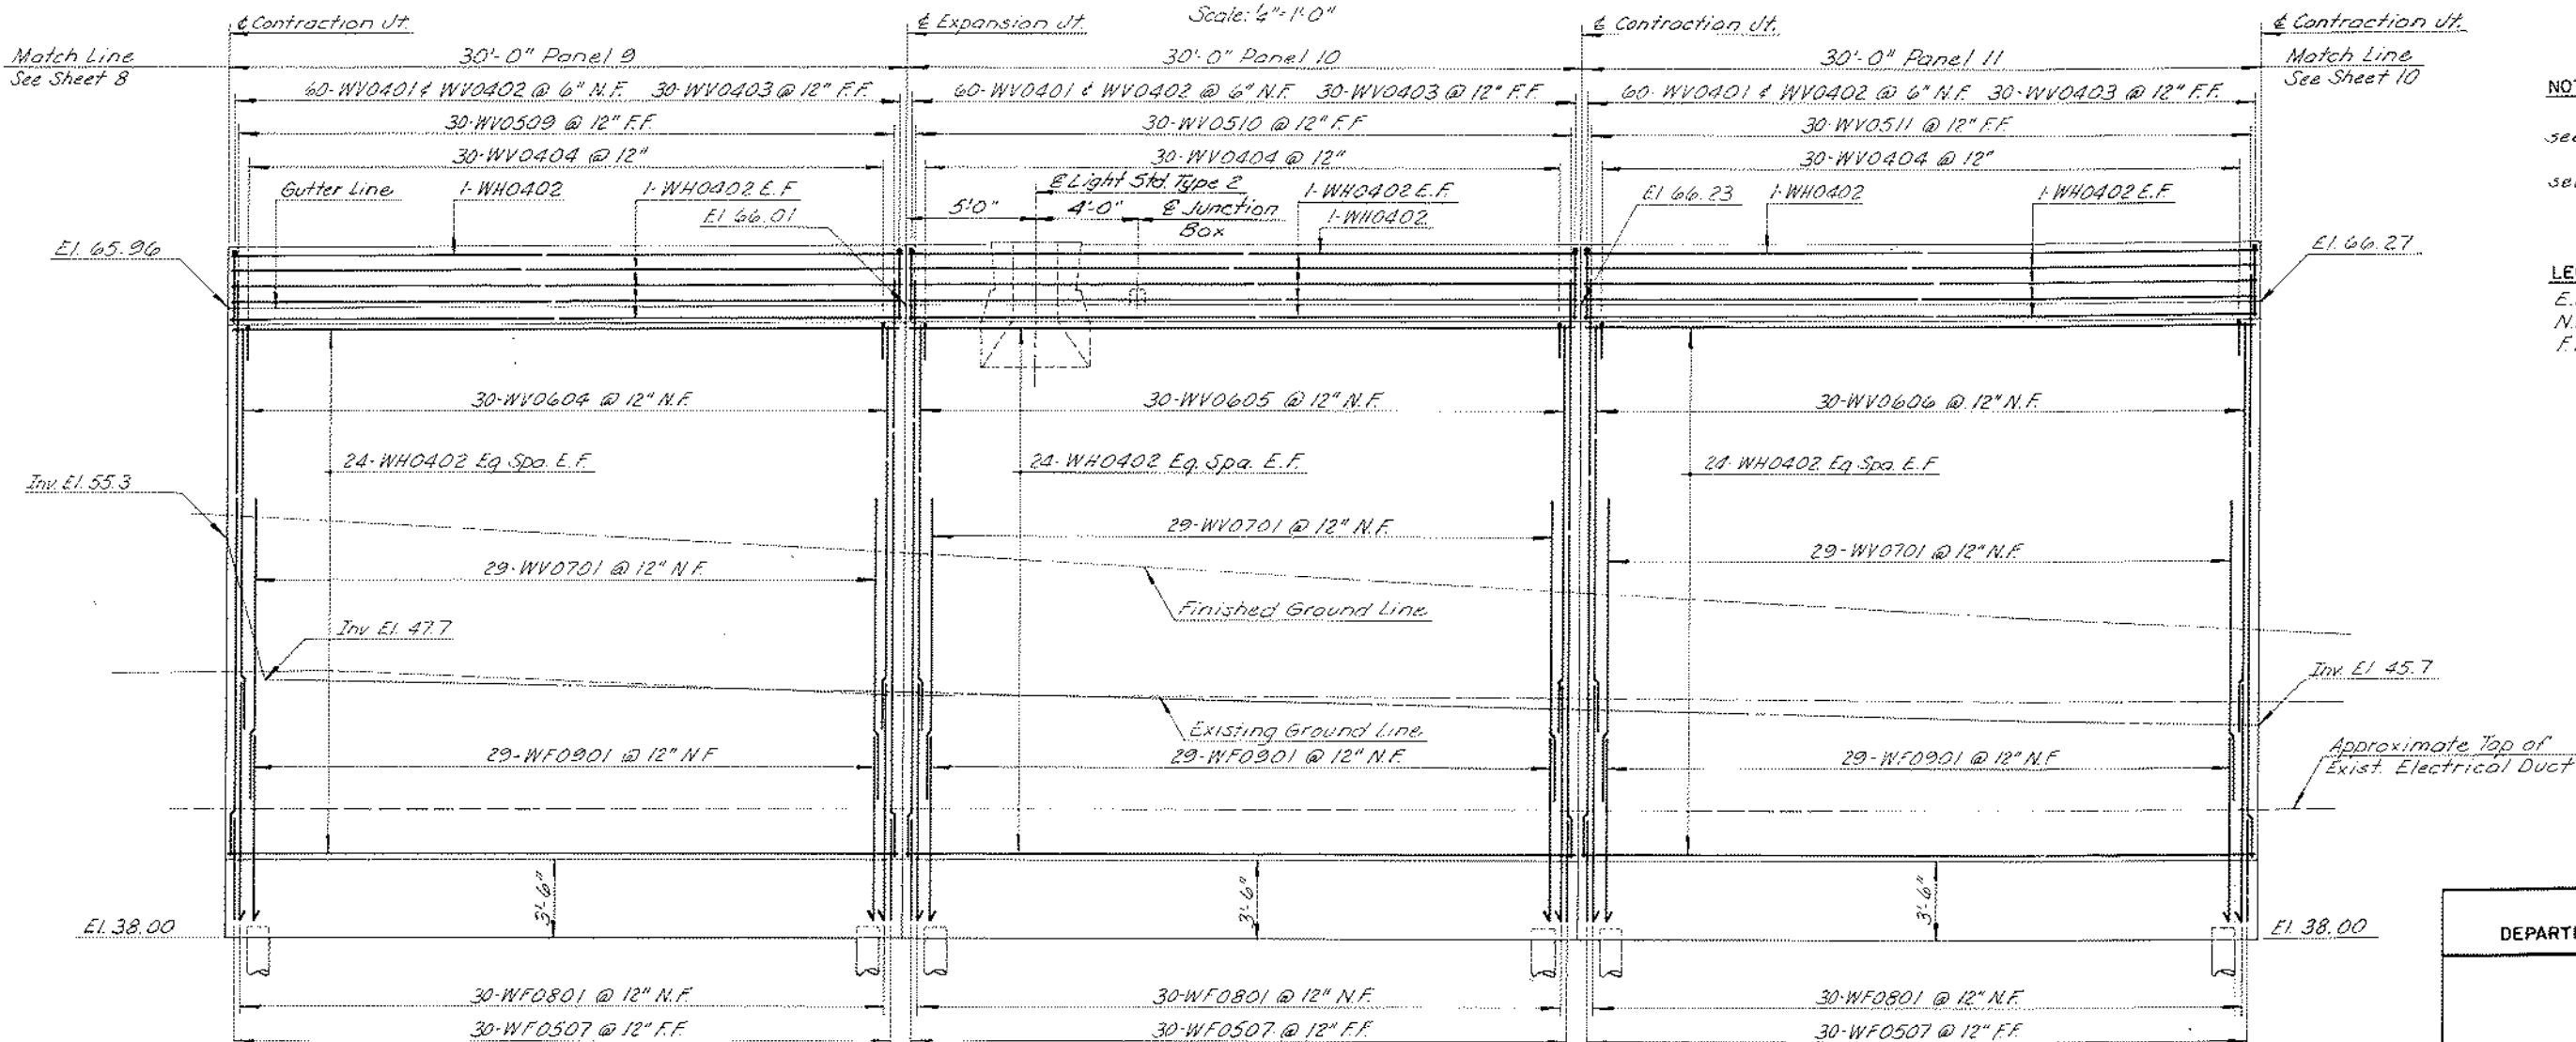 Scale: ¼"=1'-0"
℄ Contraction Jt.
℄ Expansion Jt.
℄ Contraction Jt.
℄ Contraction Jt.
Match Line
See Sheet 8
30'-0" Panel 9
30'-0" Panel 10
30'-0" Panel 11
Match Line
See Sheet 10
60-WV0401 & WV0402 @ 6" N.F. 30-WV0403 @ 12" F.F.
60-WV0401 & WV0402 @ 6" N.F. 30-WV0403 @ 12" F.F.
60-WV0401 & WV0402 @ 6" N.F. 30-WV0403 @ 12" F.F.
30-WV0509 @ 12" F.F.
30-WV0510 @ 12" F.F
30-WV0511 @ 12" F.F.
30-WV0404 @ 12"
30-WV0404 @ 12"
30-WV0404 @ 12"
Gutter Line
1-WH0402
1-WH0402 E.F
El 66.01
5'-0"
℄ Light Std. Type 2
4'-0"
℄ Junction
Box
1-WH0402 E.F.
1-WH0402
El 66.23
1-WH0402
1-WH0402 E.F.
El. 65.96
El. 66.27
30-WV0604 @ 12" N.F.
30-WV0605 @ 12" N.F.
30-WV0606 @ 12" N.F.
24-WH0402 Eq. Spa. E.F.
24-WH0402 Eq. Spa. E.F.
24-WH0402 Eq. Spa. E.F
Inv. El. 55.3
29-WV0701 @ 12" N.F.
29-WV0701 @ 12" N.F.
29-WV0701 @ 12" N.F.
Finished Ground Line
Inv El. 47.7
Inv. El 45.7
Existing Ground Line
29-WF0901 @ 12" N.F
29-WF0901 @ 12" N.F.
29-WF0901 @ 12" N.F.
Approximate Top of
Exist. Electrical Duct
3'-6"
3'-6"
3'-6"
El. 38.00
El. 38.00
30-WF0801 @ 12" N.F.
30-WF0801 @ 12" N.F.
30-WF0801 @ 12" N.F.
30-WF0507 @ 12" F.F.
30-WF0507 @ 12" F.F.
30-WF0507 @ 12" F.F.
NOT
see
LE
E.
N.
F.
DEPART